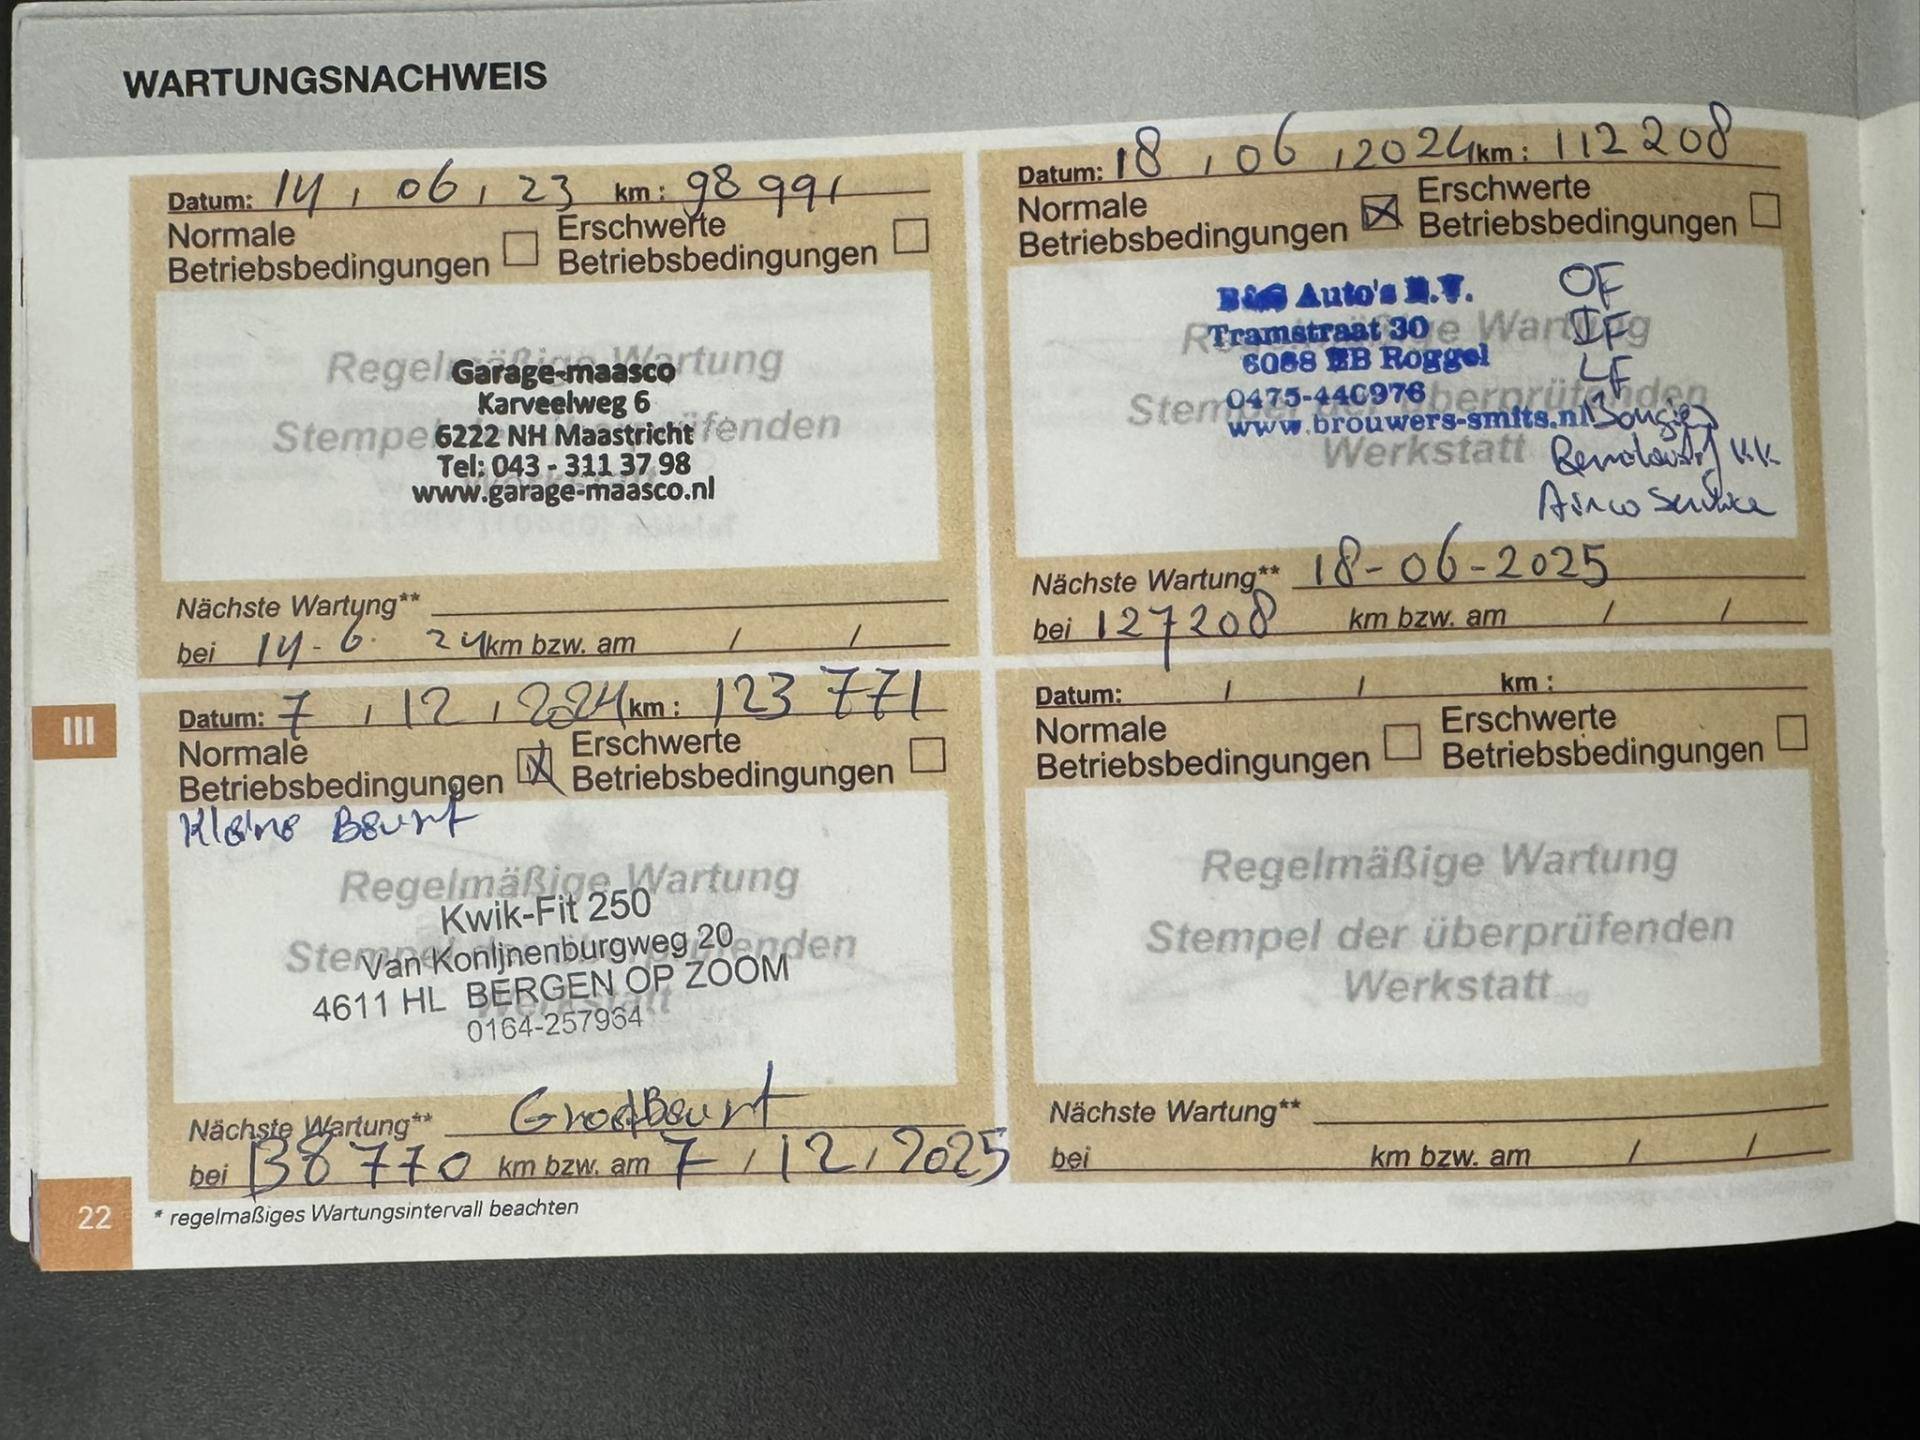 WARTUNGSNACHWEIS
Datum: 14 / 06 / 23 km : 98 991
Normale Betriebsbedingungen
Erschwerte Betriebsbedingungen
Regelmäßige Wartung
Stempel der überprüfenden
Werkstatt
Garage-maasco
Karveelweg 6
6222 NH Maastricht
Tel: 043 - 311 37 98
www.garage-maasco.nl
Nächste Wartung**
bei 14-6- 24 km bzw. am / /
Datum: 18 / 06 / 2024 km : 112208
Normale Betriebsbedingungen
Erschwerte Betriebsbedingungen
Regelmäßige Wartung
Stempel der überprüfenden
Werkstatt
B&S Auto's B.V.
Tramstraat 30
6088 EB Roggel
0475-440976
www.brouwers-smits.nl
OF
IF
LF
Bougies
KK
Airco Service
Nächste Wartung** 18-06-2025
bei 127208 km bzw. am / /
Datum: 7 / 12 / 2024 km : 123 771
Normale Betriebsbedingungen
Erschwerte Betriebsbedingungen
Kleine Beurt
Regelmäßige Wartung
Stempel der überprüfenden
Werkstatt
Kwik-Fit 250
Van Konijnenburgweg 20
4611 HL BERGEN OP ZOOM
0164-257964
Nächste Wartung** Groot Beurt
bei 138770 km bzw. am 7 / 12 / 2025
Datum: / / km :
Normale Betriebsbedingungen
Erschwerte Betriebsbedingungen
Regelmäßige Wartung
Stempel der überprüfenden
Werkstatt
Nächste Wartung**
bei km bzw. am / /
III
22
* regelmaßiges Wartungsintervall beachten